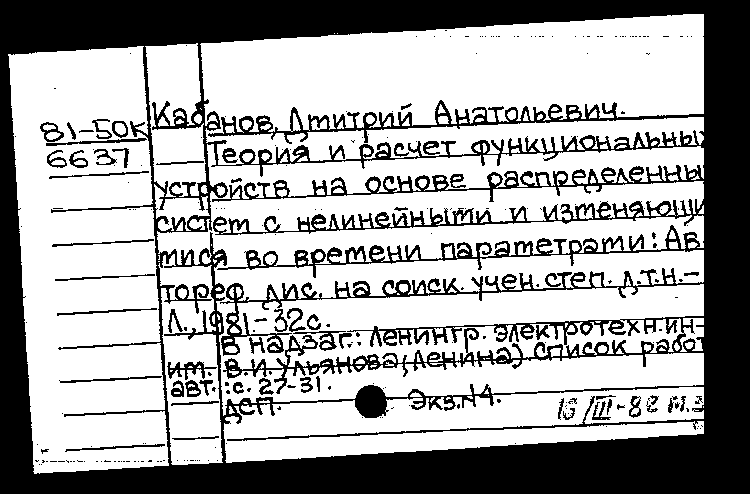 Кабанов, Дмитрий Анатольевич.
81-50к
6637
Теория и расчет функциональных
устройств на основе распределенны
систем с нелинейными и изменяющи
мися во времени параметрами: Ав
тореф. дис. на соиск. учен. степ. д.т.н.-
Л., 1981.-32с.
В надзаг.: Ленингр. электротехн. ин-
им. В.И. Ульянова (Ленина). Список работ
авт.: с. 27-31.
ДСП. Экз. N4.
16/III-82